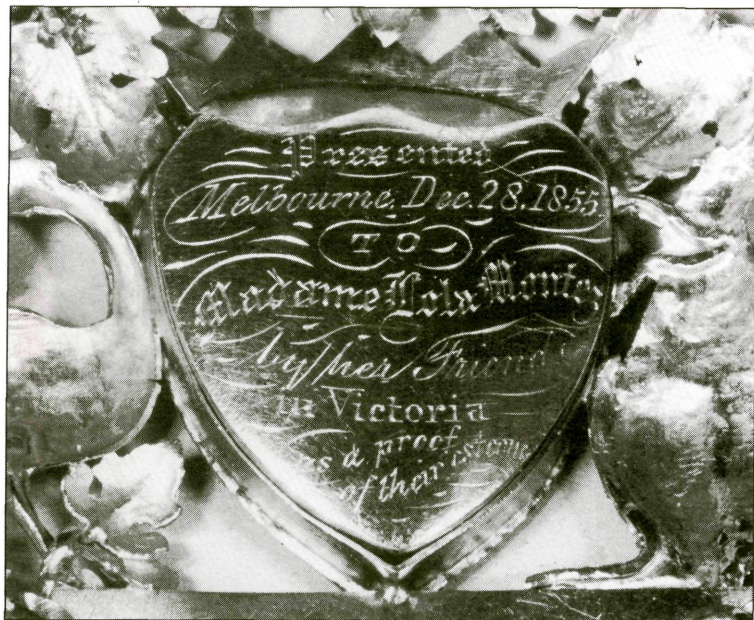 Presented
Melbourne, Dec. 28. 1855
TO
Madame Lola Montez
by her Friends
in Victoria
as a proof
of their esteeme